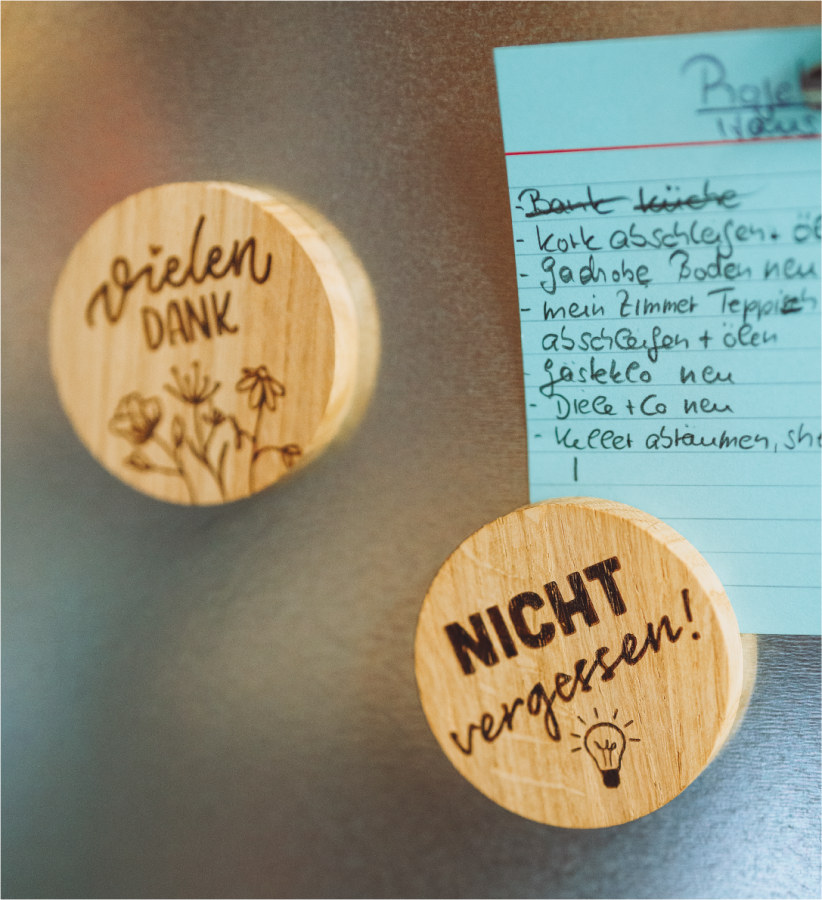 vielen
DANK
Projek
Haus
- Bank Küche
- Kork abschleifen + öl
- Gadrobe Boden neu
- mein Zimmer Teppich
abschleifen + ölen
- Gästeklo neu
- Diele + Co neu
- Keller abräumen,
NICHT
vergessen!